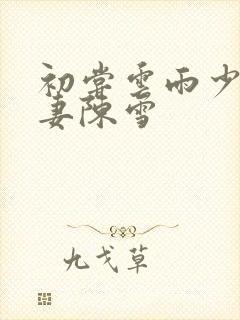 初尝雲雨少
妻陳雪
九戈草